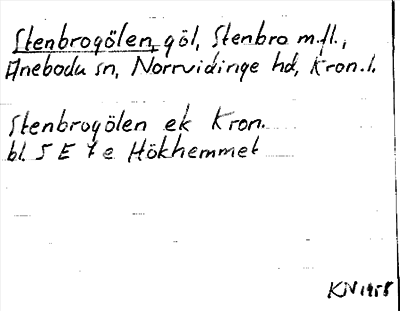 Stenbrogölen, göl, Stenbro m.fl.,
Aneboda sn, Norrvidinge hd, Kron.l.
Stenbrogölen ek Kron.
bl. 5 E 7 e Hökhemmet
KN 1958